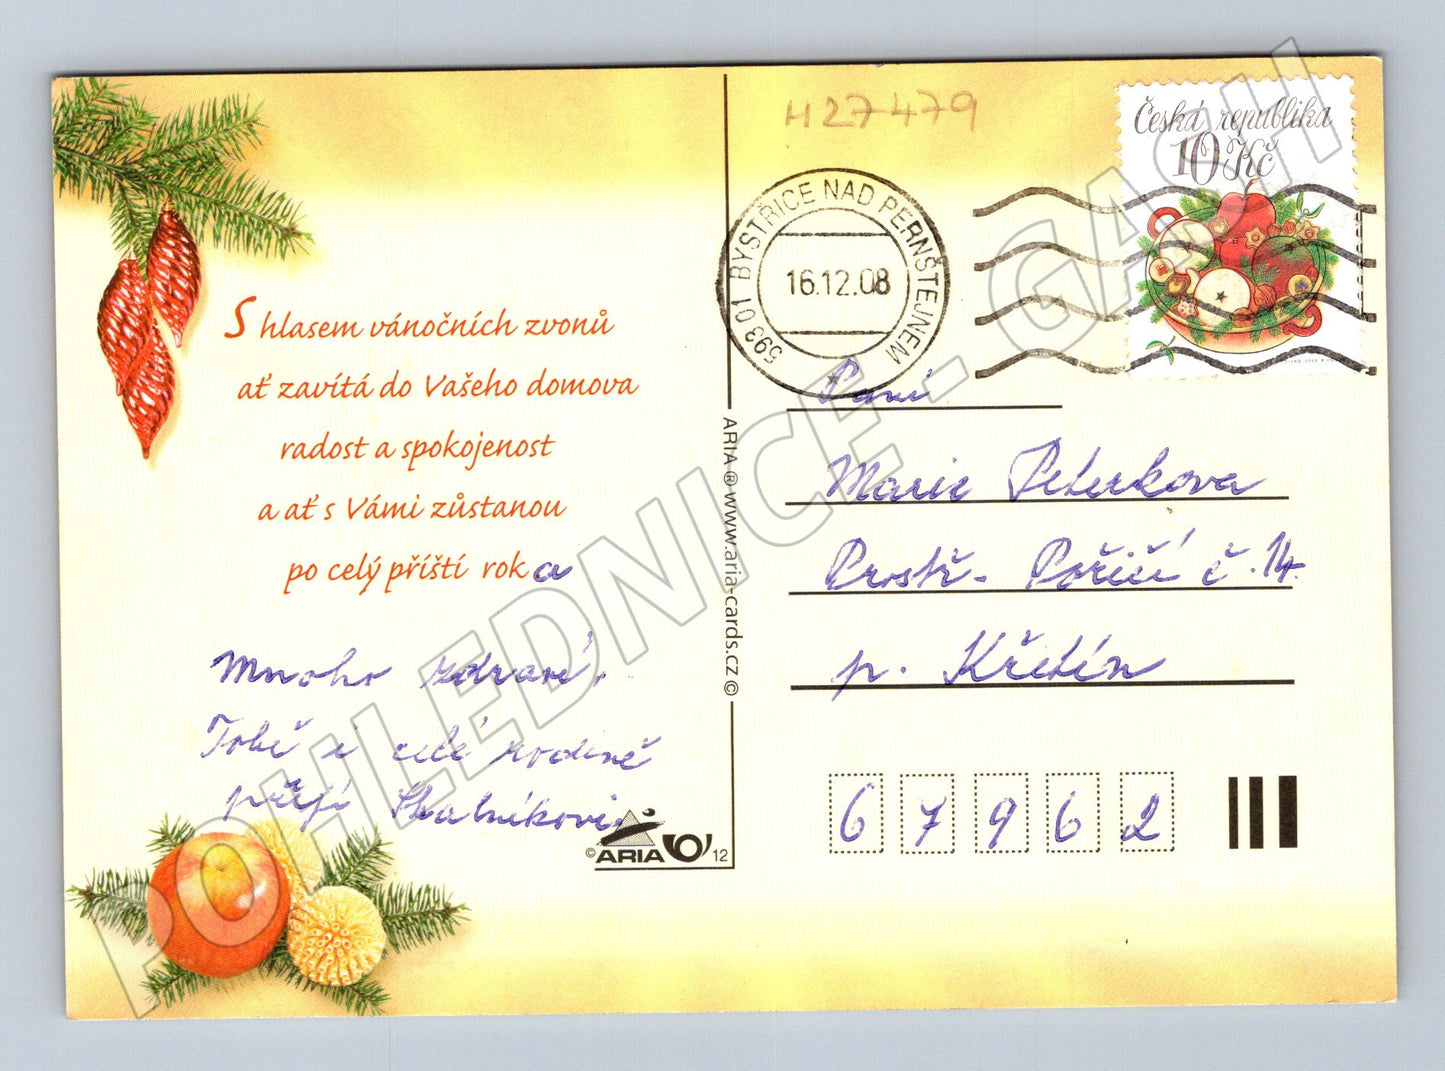 S hlasem vánočních zvonů
ať zavítá do Vašeho domova
radost a spokojenost
a ať s Vámi zůstanou
po celý příští rok a
Mnoho zdraví.
Tobě i celé rodině
přejí Skalníkovi
© ARIA 12
ARIA ® www.aria-cards.cz ©
H27479
593 01 BYSTŘICE NAD PERNŠTEJNEM
16.12.08
Česká republika
10 Kč
Paní
Marie Peterkova
Prostř. Poříčí č. 14.
p. Křetín
67962
POHLEDNICE - GASH